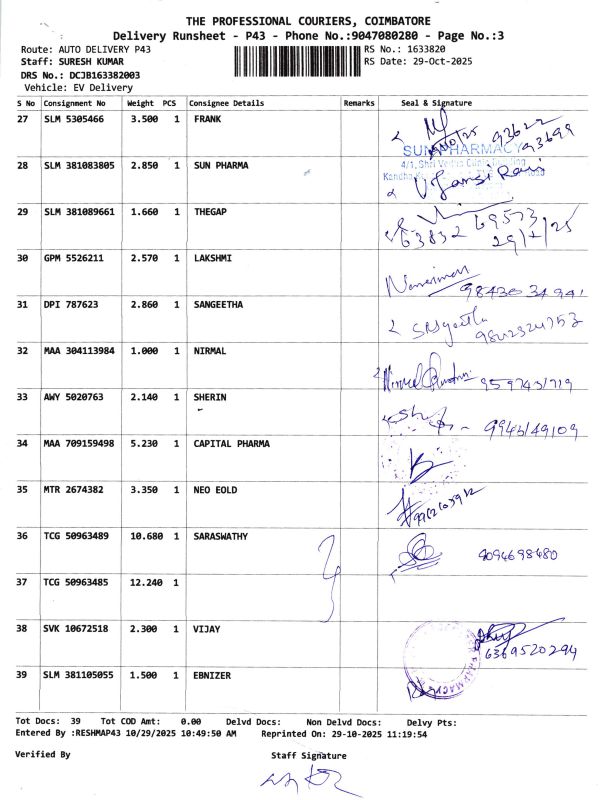 THE PROFESSIONAL COURIERS, COIMBATORE
Delivery Runsheet - P43 - Phone No.:9047080280 - Page No.:3
Route: AUTO DELIVERY P43 RS No.: 1633820
Staff: SURESH KUMAR RS Date: 29-Oct-2025
DRS No.: DCJB163382003
Vehicle: EV Delivery
S No Consignment No Weight PCS Consignee Details Remarks Seal & Signature
27 SLM 5305466 3.500 1 FRANK
93622
93699
28 SLM 381083805 2.850 1 SUN PHARMA SUN PHARMACY
4/1, Shri
29 SLM 381089661 1.660 1 THEGAP
63832 69573
30 GPM 5526211 2.570 1 LAKSHMI
98430 34941
31 DPI 787623 2.860 1 SANGEETHA
32 MAA 304113984 1.000 1 NIRMAL
9597431719
33 AWY 5020763 2.140 1 SHERIN
9943149109
34 MAA 709159498 5.230 1 CAPITAL PHARMA
35 MTR 2674382 3.350 1 NEO EOLD
36 TCG 50963489 10.680 1 SARASWATHY
9094698480
37 TCG 50963485 12.240 1
38 SVK 10672518 2.300 1 VIJAY
6369520294
39 SLM 381105055 1.500 1 EBNIZER
Tot Docs: 39 Tot COD Amt: 0.00 Delvd Docs: Non Delvd Docs: Delvy Pts:
Entered By :RESHMAP43 10/29/2025 10:49:50 AM Reprinted On: 29-10-2025 11:19:54
Verified By Staff Signature